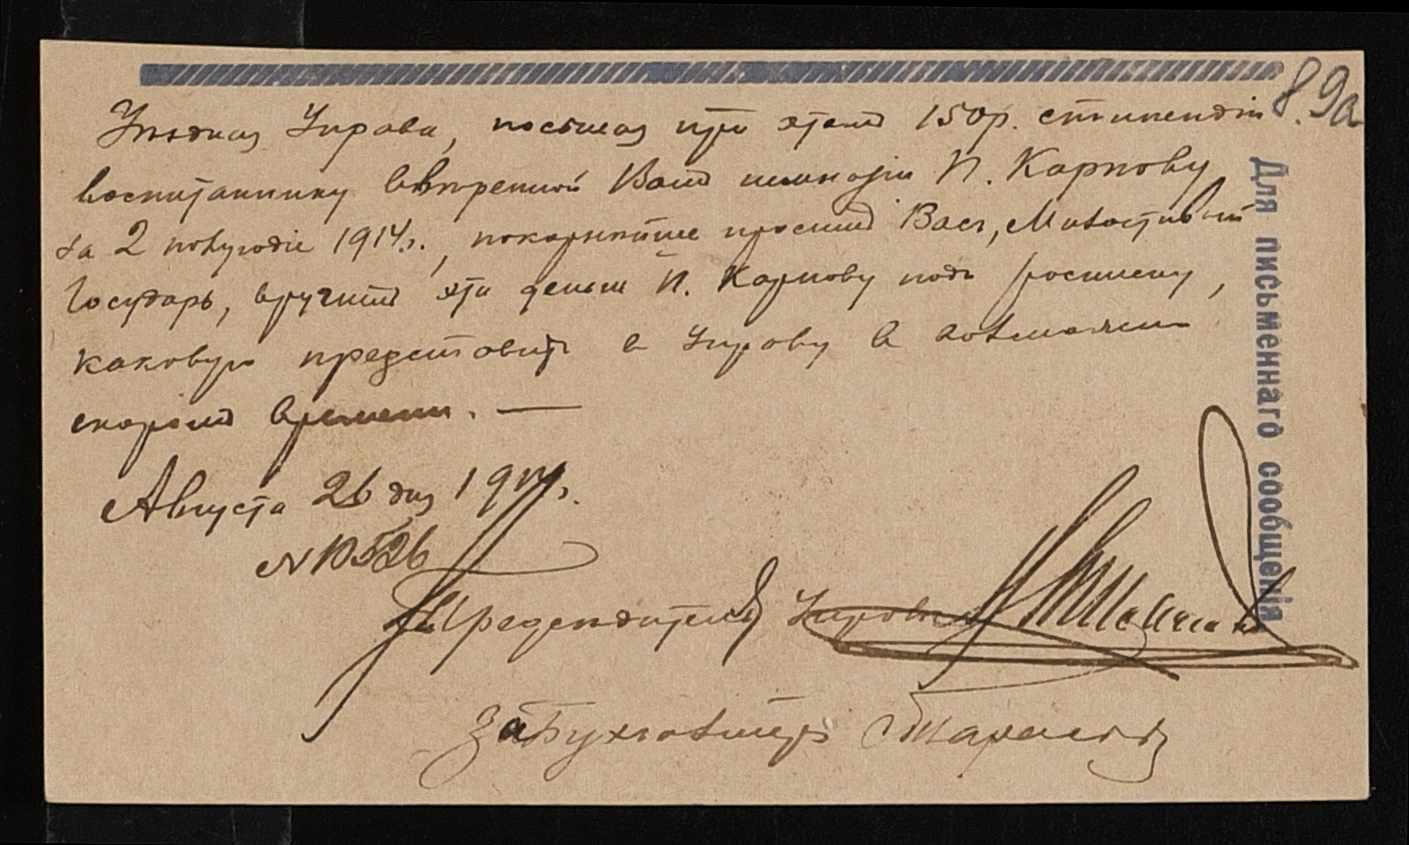 Уѣздная Управа, посылая при этомъ 150р. стипендіи
воспитаннику ввѣренной Вамъ гимназіи П. Карпову
за 2 полугодіе 1914г., покорнѣйше проситъ Васъ, Милостивый
Государь, вручить эти деньги П. Карпову подъ росписку,
каковую представить в Управу в возможно
скоромъ времени. —
Августа 26 дня 1914г.
N 10526
Председатель Управы
За Бухгалтера
8. 9а
Для письменнаго сообщенія